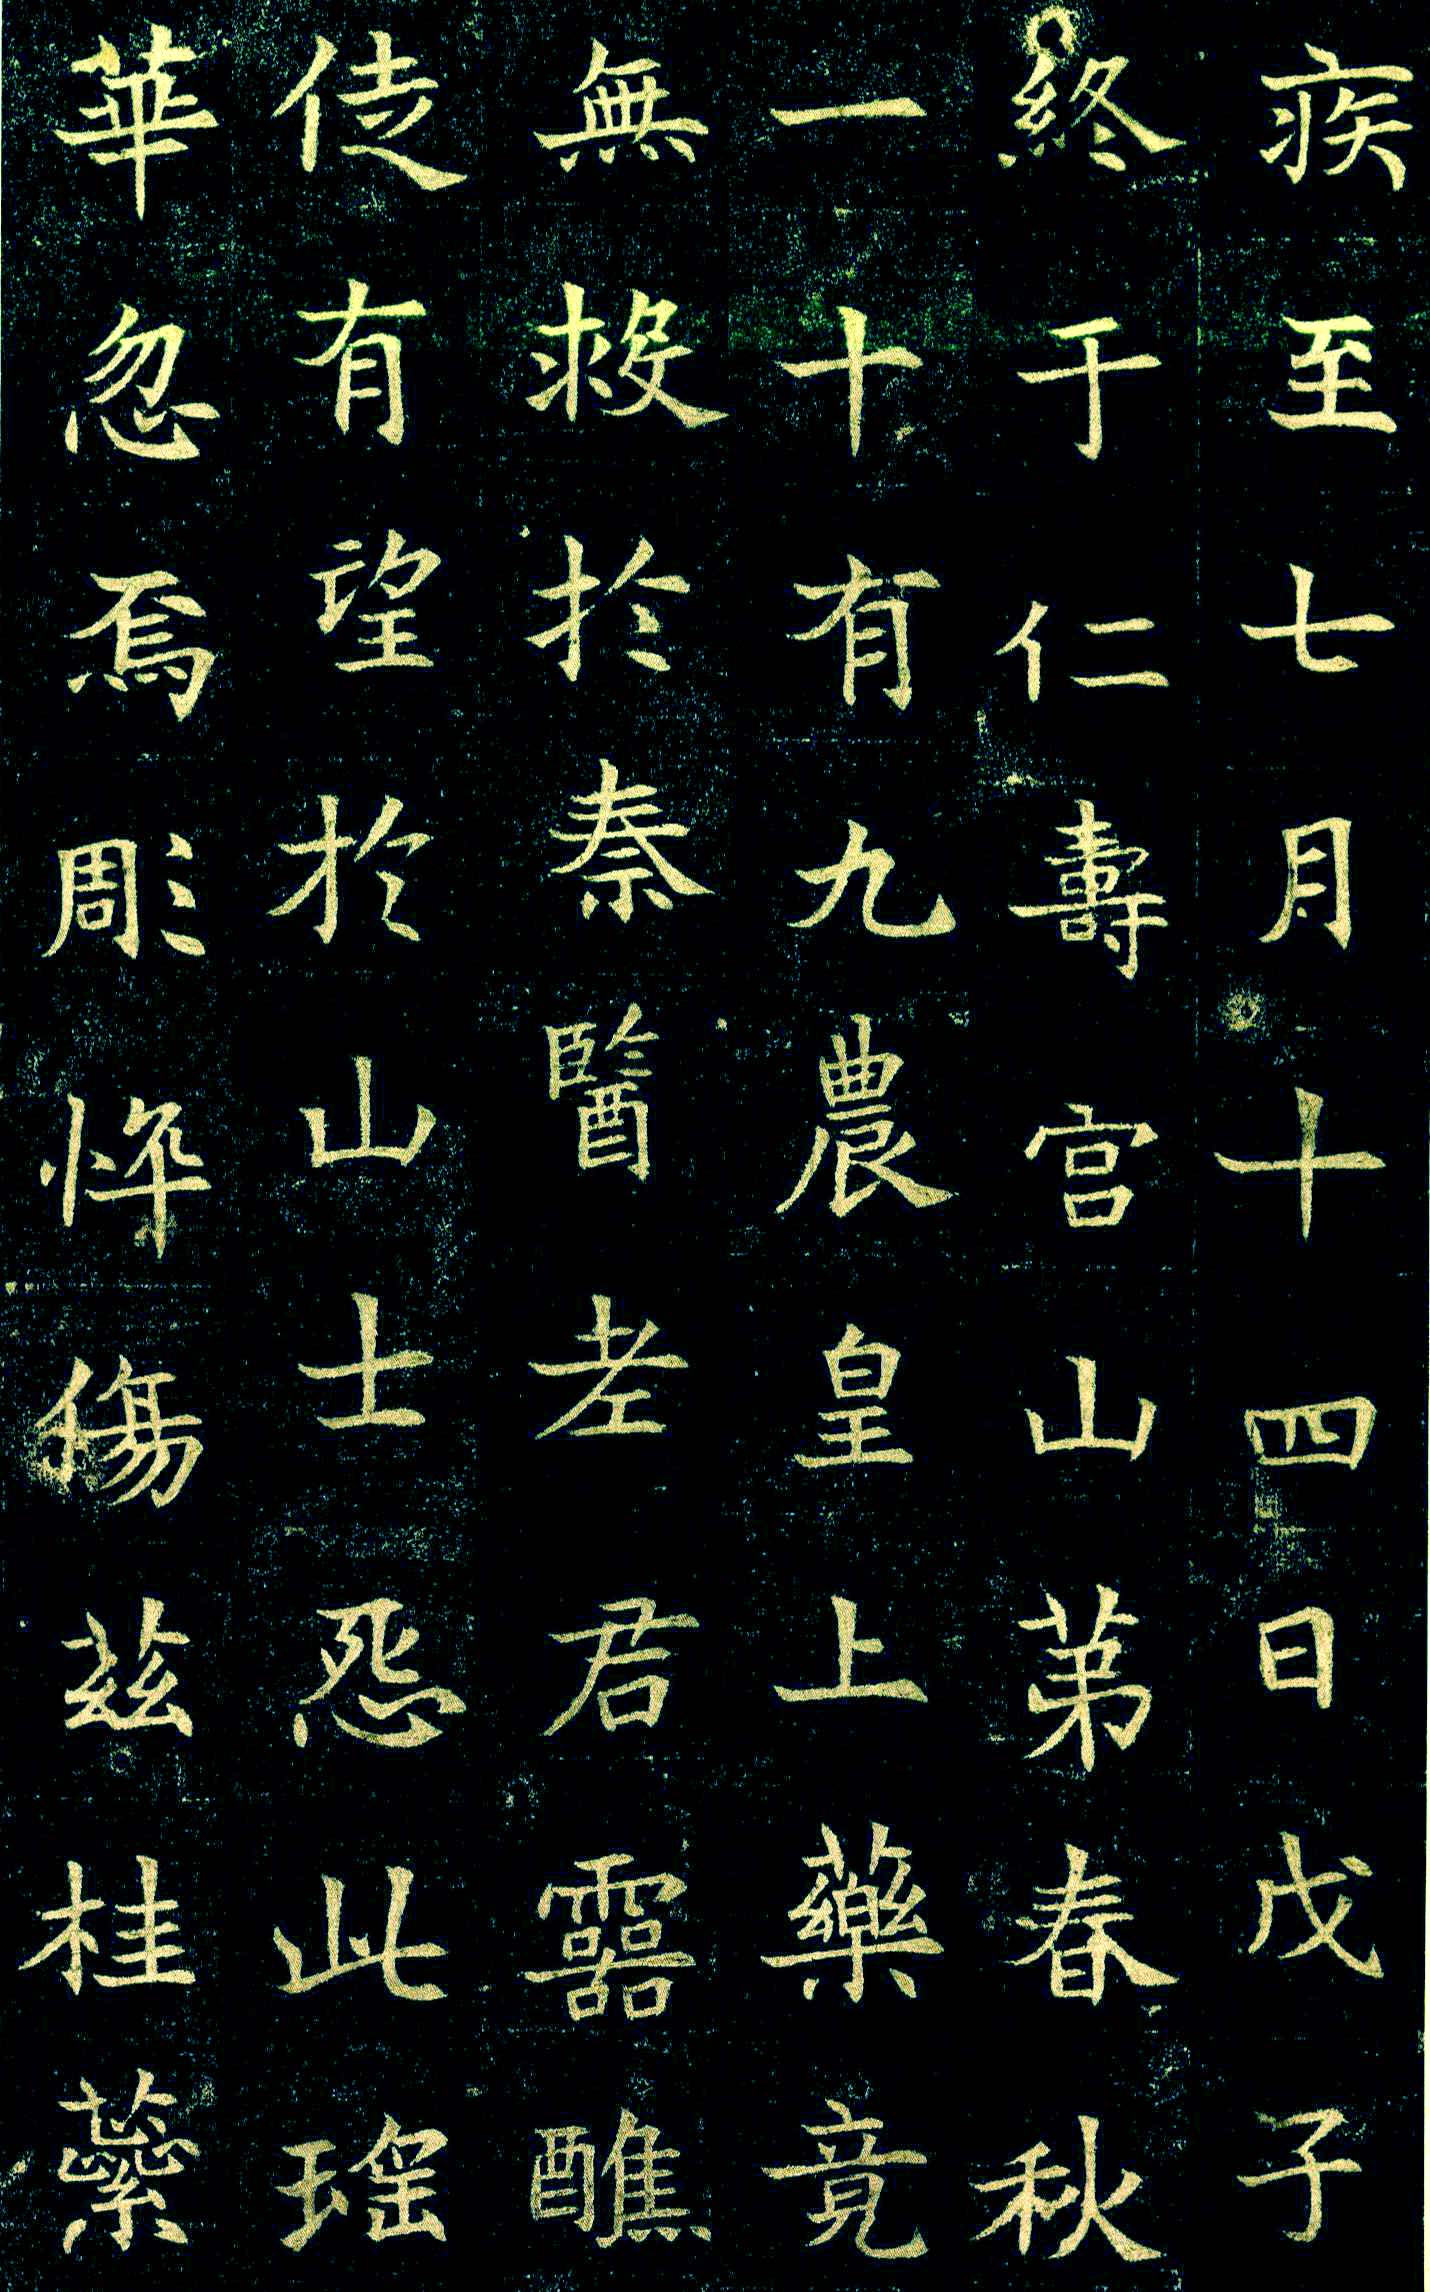 疾至七月十四日戊子
終于仁壽宮山苐春秋
一十有九農皇上藥竟
無救扵秦醫老君靈醮
徒有望扵山士怨此瑤
華忽焉彫悴傷茲桂蘂